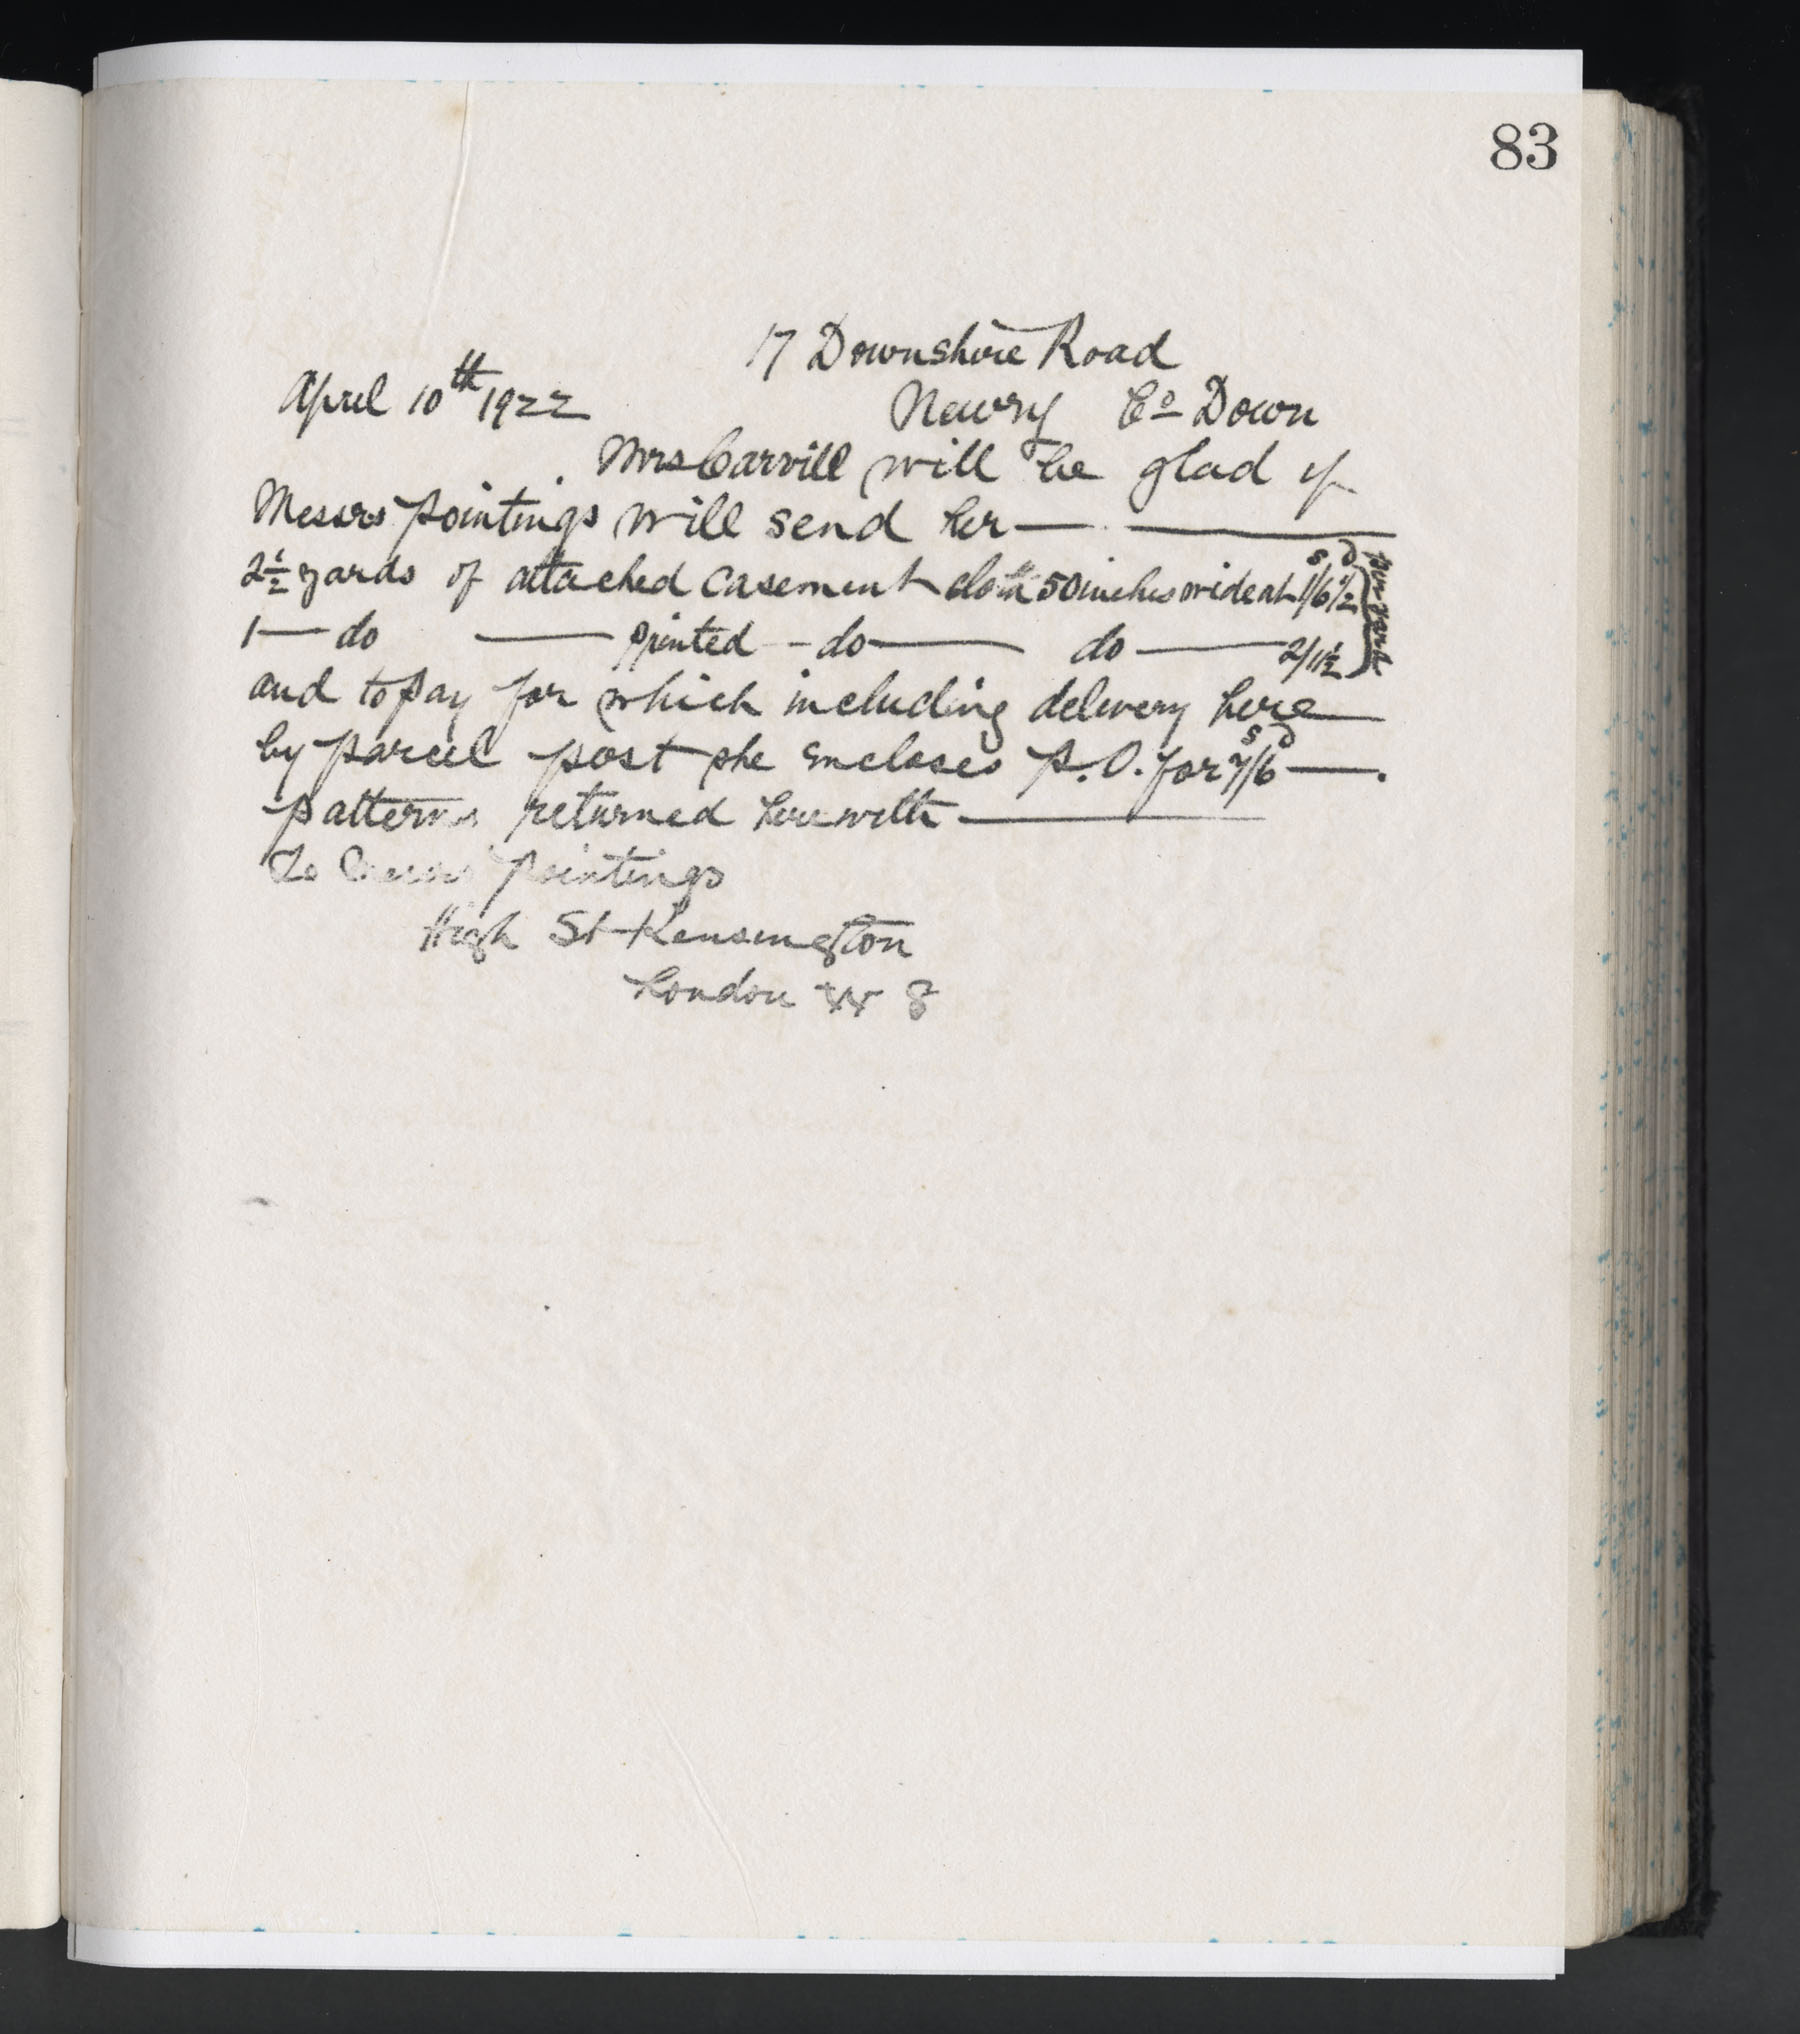 83
17 Downshire Road
April 10th 1922 Newry Co Down
Mrs Carvill will be glad if
Messrs Pointings will send her —— ——
2½ yards of attached casement cloth 50 inches wide at 1/6½ s d
1 — do —— printed — do —— do —— 2/11½ } per yard
and to pay for which including delivery here
by parcel post she encloses P.O. for 7/6 s d —.
patterns returned herewith ——
To Messrs Pointings
High St Kensington
London W 8